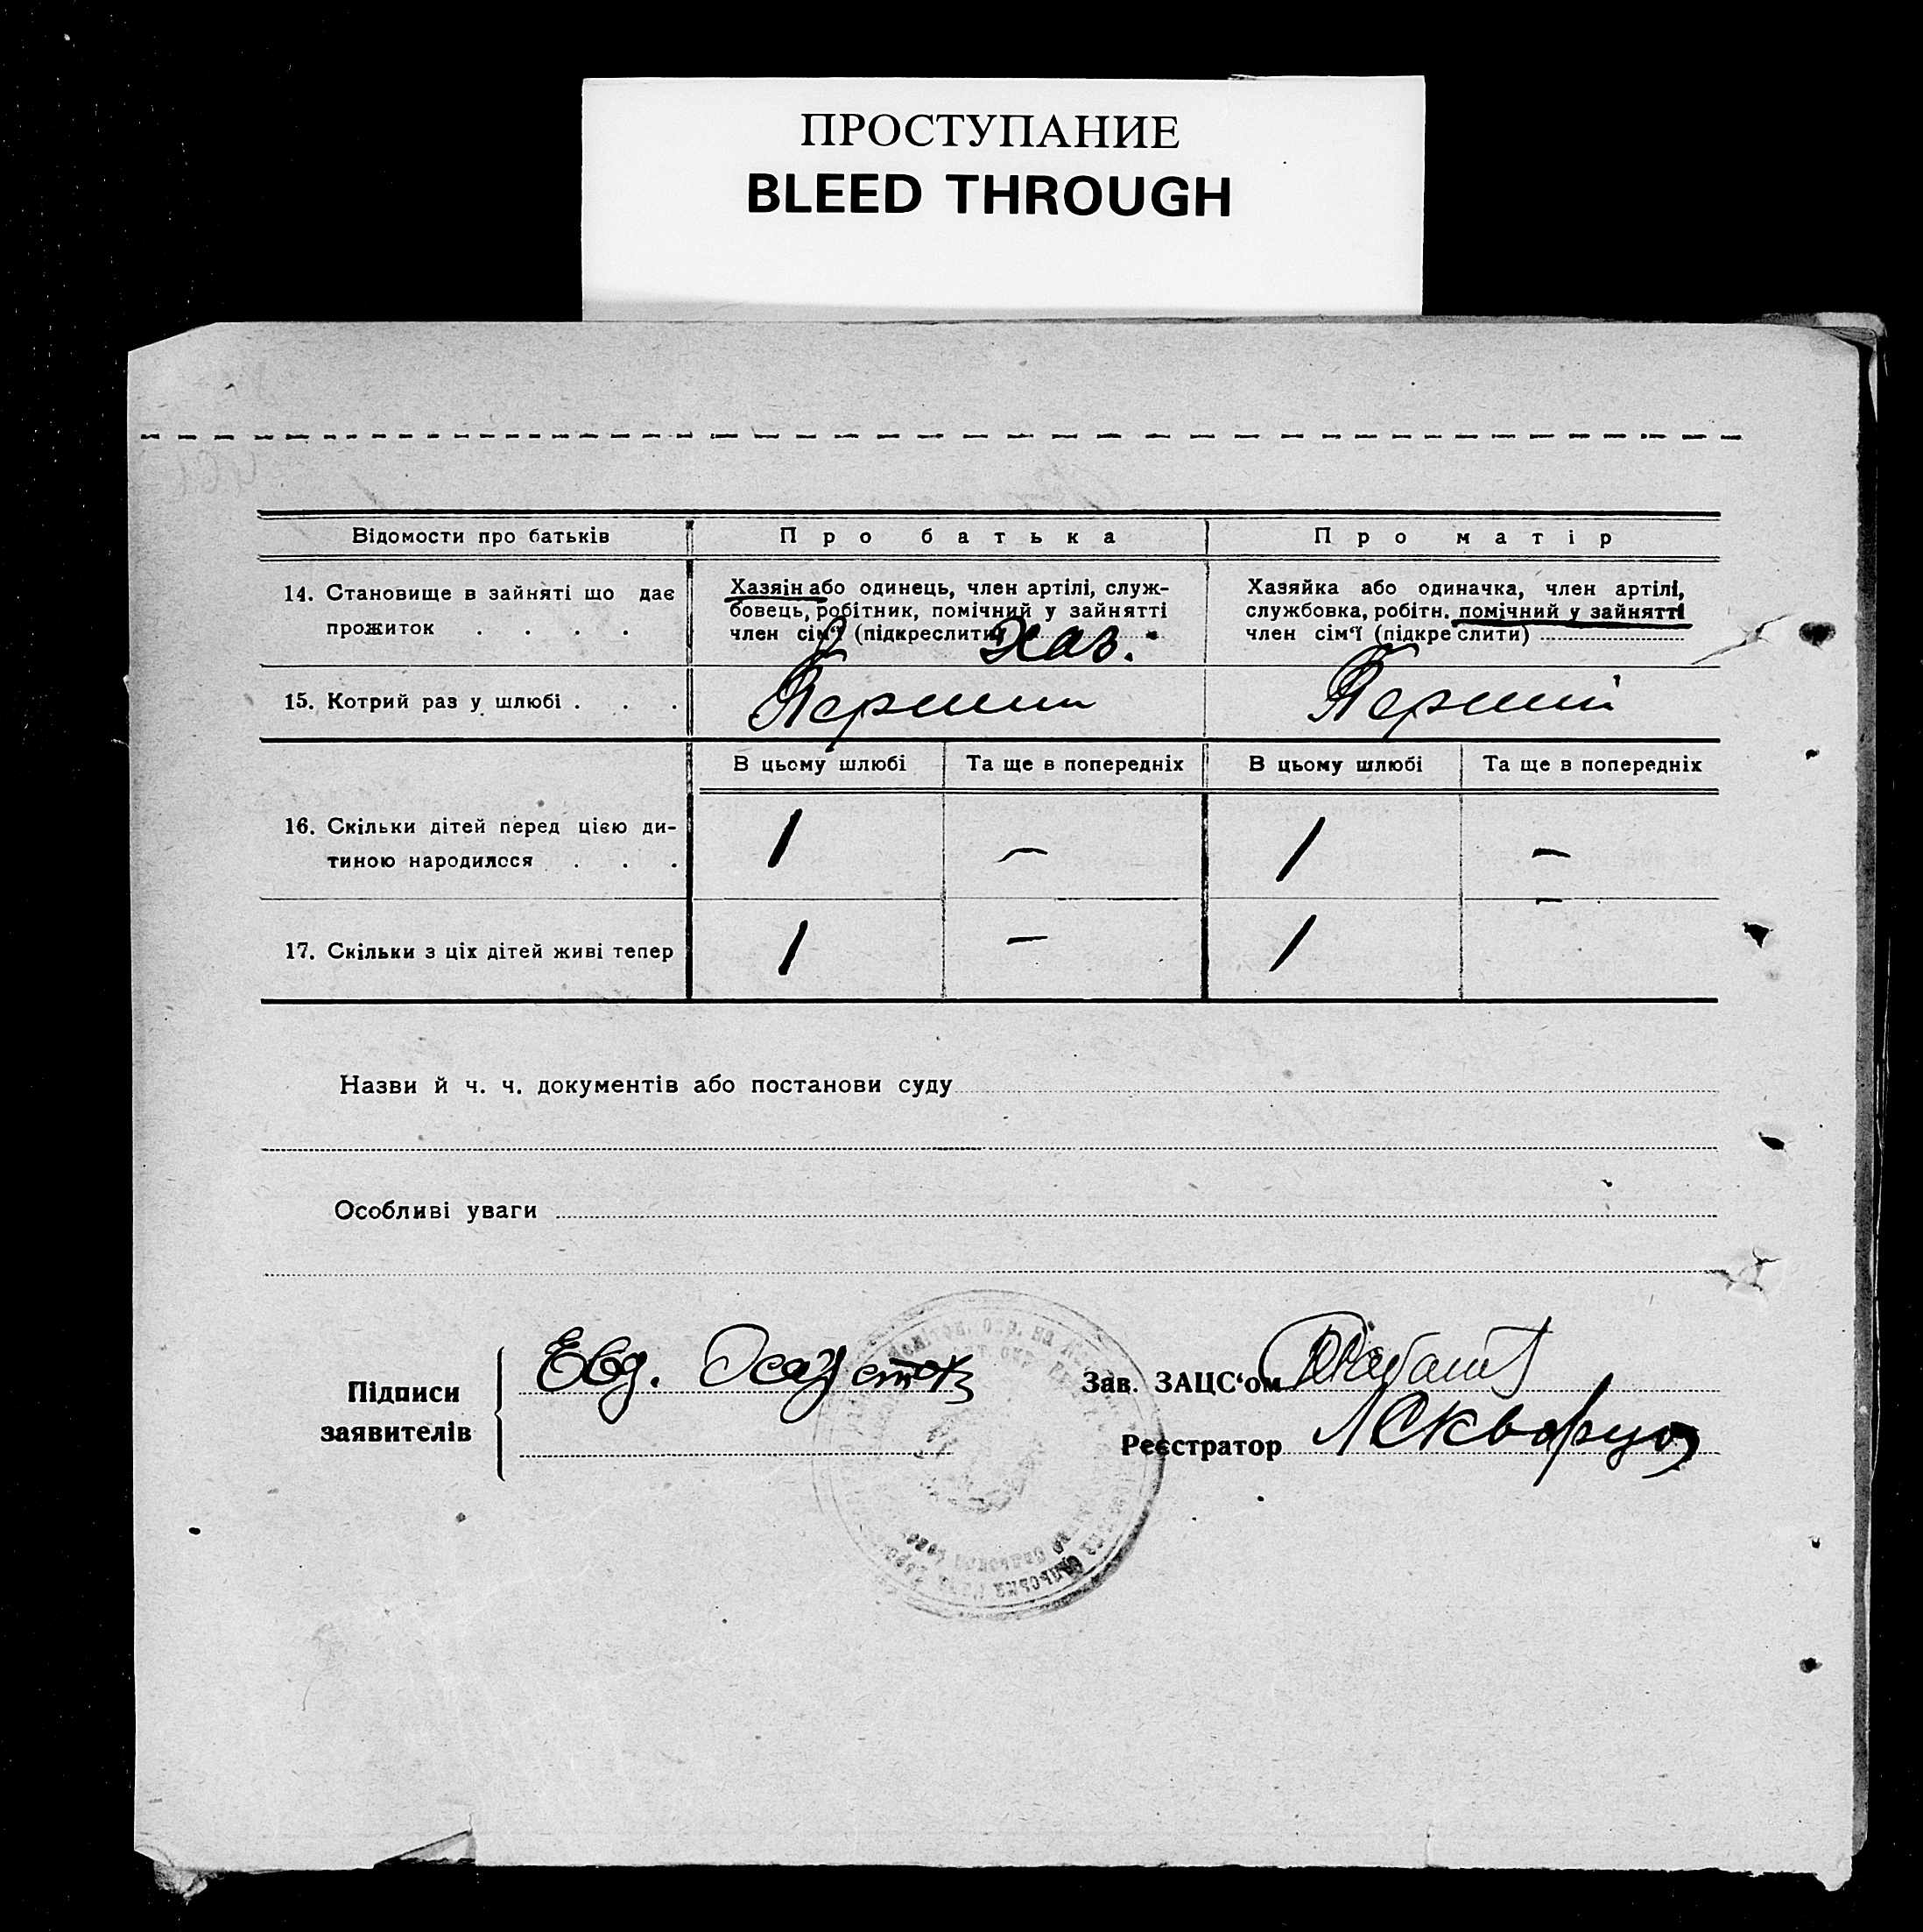 ПРОСТУПАНИЕ
BLEED THROUGH
Відомости про батьків
Про батька
Про матір
14. Становище в зайняті що дає
прожиток . . . .
Хазяін або одинець, член артілі, служ-
бовець, робітник, помічний у зайнятті
член сім'ї (підкреслити) Хаз.
Хазяйка або одиначка, член артілі,
службовка, робітн. помічний у зайнятті
член сім'ї (підкреслити)
15. Котрий раз у шлюбі . . .
Перший
Перший
В цьому шлюбі
Та ще в попередніх
В цьому шлюбі
Та ще в попередніх
16. Скільки дітей перед цією ди-
тиною народилося . . .
1
—
1
—
17. Скільки з ціх дітей живі тепер
1
—
1
—
Назви й ч. ч. документів або постанови суду
Особливі уваги
Підписи
заявителів
Евд.
Зав. ЗАЦС‘ом
Реєстратор